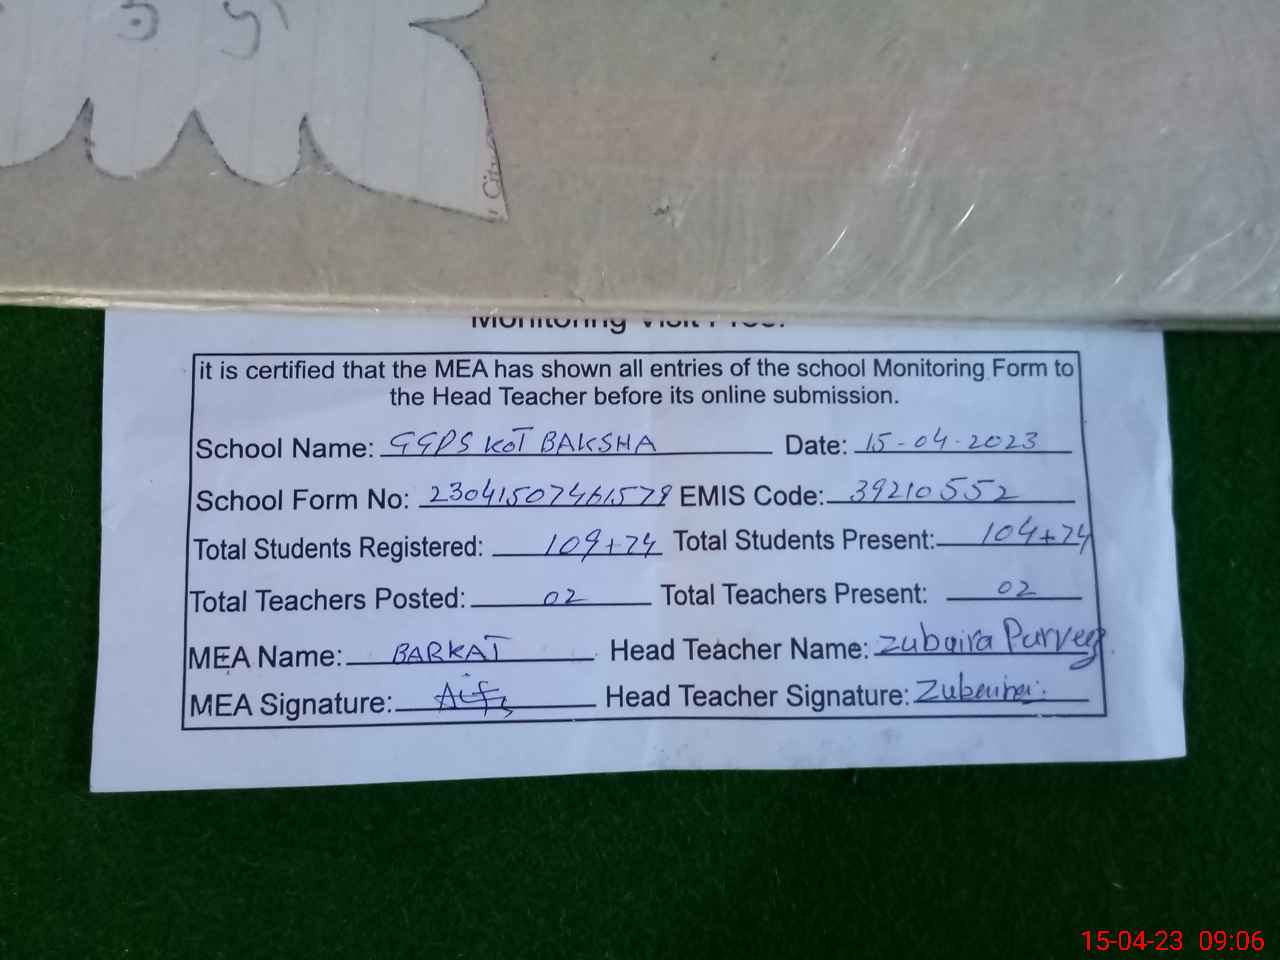 City
Monitoring Visit Proof
it is certified that the MEA has shown all entries of the school Monitoring Form to
the Head Teacher before its online submission.
School Name: GGPS KOT BAKSHA Date: 15-04-2023
School Form No: 23041507461578 EMIS Code: 39210552
Total Students Registered: 109+74 Total Students Present: 104+74
Total Teachers Posted: 02 Total Teachers Present: 02
MEA Name: BARKAT Head Teacher Name: Zubaira Parveen
MEA Signature: Head Teacher Signature:
15-04-23 09:06